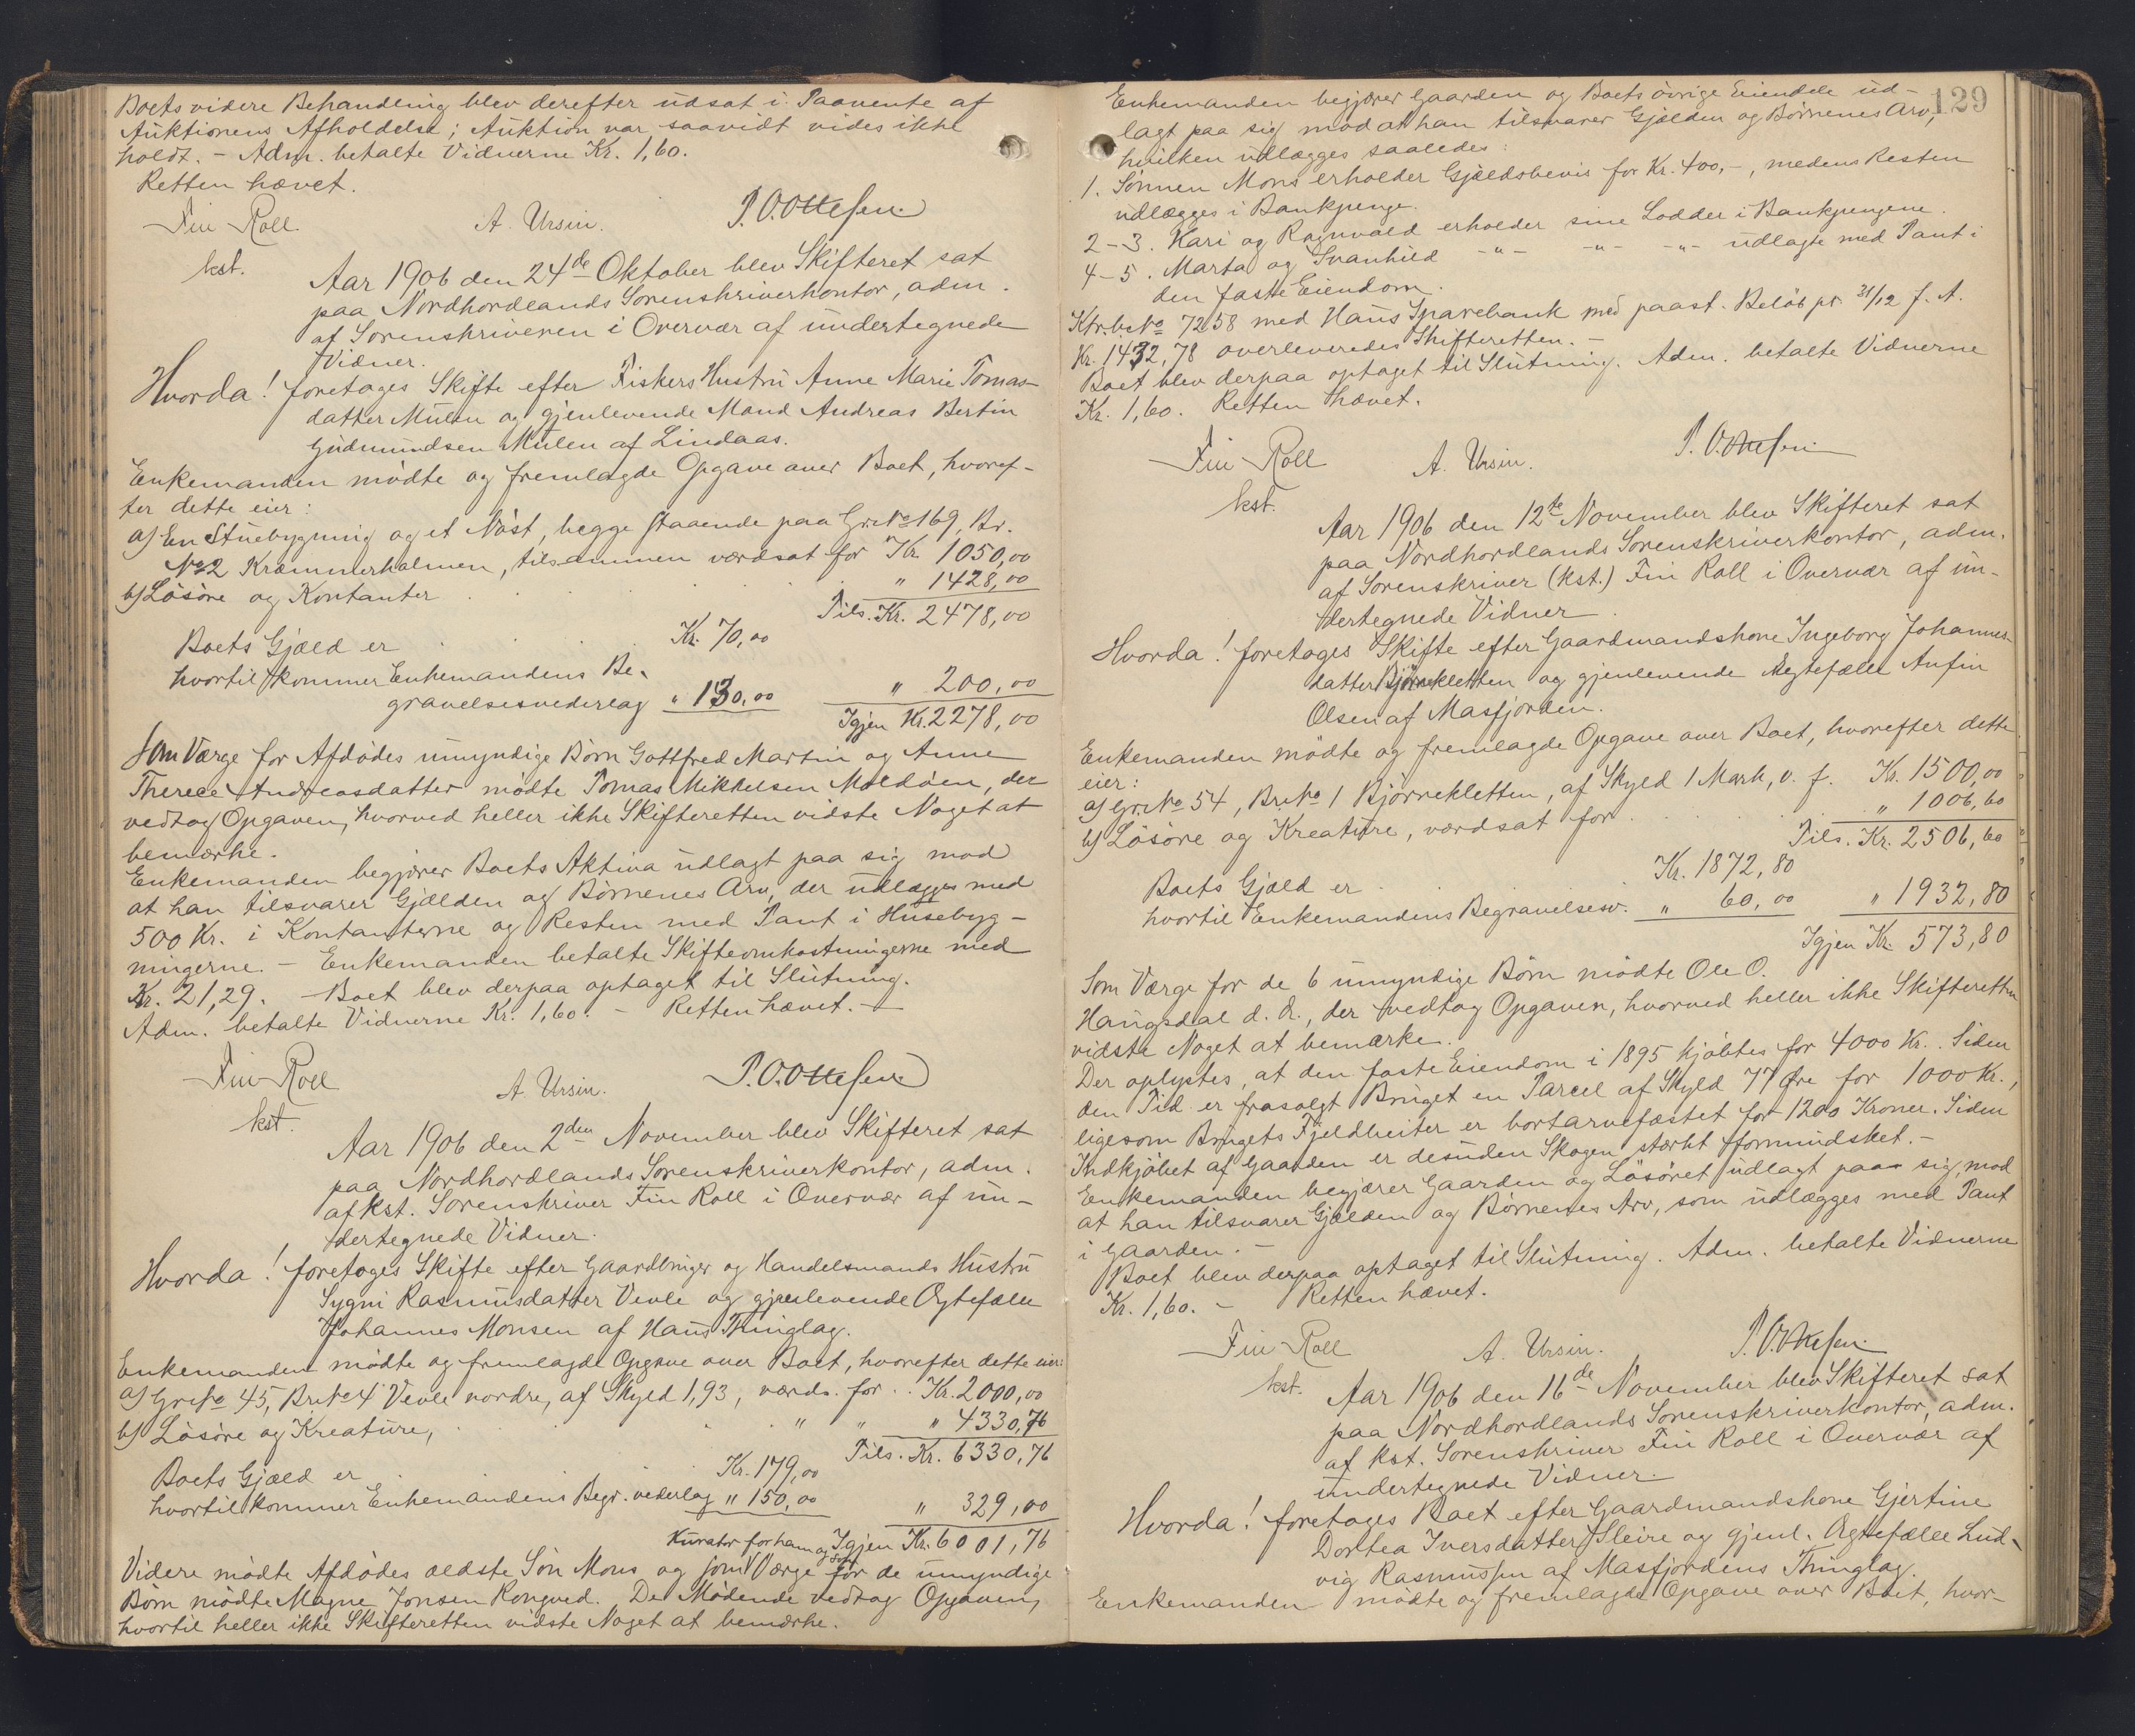 Boets videre Behandling blev derefter udsat i Paavente af
Auktionens Afholdelse; Auktion var saavidt vides ikke
holdt. - Adm. betalte Vidnerne Kr. 1,60.
Retten hævet.
Fin Roll A. Ursin. P. O. Ottesen
kst.
Aar 1906 den 24de Oktober blev Skifteret sat
paa Nordhordlands Sorenskriverkontor, adm.
af Sorenskriveren i Overvær af undertegnede
Vidner.
Hvorda! foretoges Skifte efter Fiskers Hustru Anne Marie Tomas-
datter Mulen og gjenlevende Mand Andreas Bertin
Gudmundsen Mulen af Lindaas.
Enkemanden mødte og fremlagde Opgave over Boet, hvoref-
ter dette eier:
a) En Stuebygning og et Nøst, begge staaende paa Gr. No 169, Br.
No 2 Kræmmerholmen, tilsammen værdsat for Kr. 1050,00
b) Løsøre og Kontanter . . . . . " 1428,00
Tils. Kr. 2478,00
Boets Gjæld er . . . Kr. 70,00
hvortil kommer Enkemandens Be-
gravelsesvederlag " 130,00 " 200,00
Igjen Kr. 2278,00
Som Værge for Afdødes umyndige Børn Gottfred Martin og Anne
Therece Andreasdatter mødte Tomas Mikkelsen Moldøen, der
vedtog Opgaven, hvorved heller ikke Skifteretten vidste Noget at
bemærke.
Enkemanden begjærer Boets Aktiva udlagt paa sig mod
at han tilsvarer Gjælden og Børnenes Arv, der udlægges med
500 Kr. i Kontanterne og Resten med Pant i Husebyg-
ningerne. - Enkemanden betalte Skifteomkostningerne med
Kr. 21,29. - Boet blev derpaa optaget til Slutning.
Adm. betalte Vidnerne Kr. 1,60. - Retten hævet. -
Fin Roll A. Ursin. P. O. Ottesen
kst.
Aar 1906 den 2den November blev Skifteret sat
paa Nordhordlands Sorenskriverkontor, adm.
af kst. Sorenskriver Fin Roll i Overvær af un-
dertegnede Vidner.
Hvorda! foretoges Skifte efter Gaardbruger og Handelsmands Hustru
Sygni Rasmusdatter Vevle og gjenlevende Ægtefælle
Johannes Monsen af Haus Thinglag.
Enkemanden mødte og fremlagde Opgave over Boet, hvorefter dette eier:
a) Gr. No 45, Br. No 4 Vevle nordre, af Skyld 1,93, værds. for . . Kr. 2000,00
b) Løsøre og Kreature, . . . " " " 4330,76
Tils. Kr. 6330,76
Boets Gjæld er . . . Kr. 179,00
hvortil kommer Enkemandens Begr. vederlag " 150,00 " 329,00
Igjen Kr. 6001,76
Kurator for ham og som
Videre mødte Afdødes ældste Søn Mons og som Værge for de umyndige
Børn mødte Magne Jonsen Rongved. De Mødende vedtog Opgaven,
hvortil heller ikke Skifteretten vidste Noget at bemærke.
129
Enkemanden begjærer Gaarden og Boets øvrige Eiendele ud-
lagt paa sig mod at han tilsvarer Gjælden og Børnenes Arv,
hvilken udlægges saaledes:
1. Sønnen Mons erholder Gjældsbevis for Kr. 400,-, medens Resten
udlægges i Bankpenge.
2-3. Kari og Ragnvald erholder sine Lodder i Bankpengene.
4-5. Marta og Svanhild -"- -"- -"- udlagte med Pant i
den faste Eiendom.
Ktr. bc No 7258 med Haus Sparebank med paast. Beløb pr. 31/12 f. A.
Kr. 1432,78 overleveredes Skifteretten. -
Boet blev derpaa optaget til Slutning. Adm. betalte Vidnerne
Kr. 1,60. Retten hævet.
Fin Roll A. Ursin. P. O. Ottesen
kst.
Aar 1906 den 12te November blev Skifteret sat
paa Nordhordlands Sorenskriverkontor, adm.
af Sorenskriver (kst.) Fin Roll i Overvær af un-
dertegnede Vidner.
Hvorda! foretoges Skifte efter Gaardmandskone Ingeborg Johannes-
datter Bjørnekletten og gjenlevende Ægtefælle Anfin
Olsen af Masfjorden.
Enkemanden mødte og fremlagde Opgave over Boet, hvorefter dette
eier:
a) Gr. No 54, Br. No 1 Bjørnekletten, af Skyld 1 Mark, v. f. Kr. 1500,00
b) Løsøre og Kreature, værdsat for . . . . . " 1006,60
Tils. Kr. 2506,60
Boets Gjæld er . . Kr. 1872,80
hvortil Enkemandens Begravelsesv. " 60,00 " 1932,80
Igjen Kr. 573,80
Som Værge for de 6 umyndige Børn mødte Ole O.
Haugsdal d. æ., der vedtog Opgaven, hvorved heller ikke Skifteretten
vidste Noget at bemærke.
Der oplystes, at den faste Eiendom i 1895 kjøbtes for 4000 Kr. Siden
den Tid er frasolgt Bruget en Parcel af Skyld 77 Øre for 1000 Kr.,
ligesom Brugets Fjeldbeiter er bortarvefæstet for 1200 Kroner. Siden
Indkjøbet af Gaarden er desuden Skogen stærkt formindsket. -
Enkemanden begjærer Gaarden og Løsøret udlagt paa sig, mod
at han tilsvarer Gjælden og Børnenes Arv, som udlægges med Pant
i Gaarden. -
Boet blev derpaa optaget til Slutning. Adm. betalte Vidnerne
Kr. 1,60. - Retten hævet.
Fin Roll A. Ursin. P. O. Ottesen
kst.
Aar 1906 den 16de November blev Skifteret sat
paa Nordhordlands Sorenskriverkontor, adm.
af kst. Sorenskriver Fin Roll i Overvær af
undertegnede Vidner.
Hvorda! foretoges Boet efter Gaardmandskone Gjertine
Dortea Iversdatter Sleire og gjenl. Ægtefælle Lud-
vig Rasmussen af Masfjordens Thinglag.
Enkemanden mødte og fremlagde Opgave over Boet, hvor-